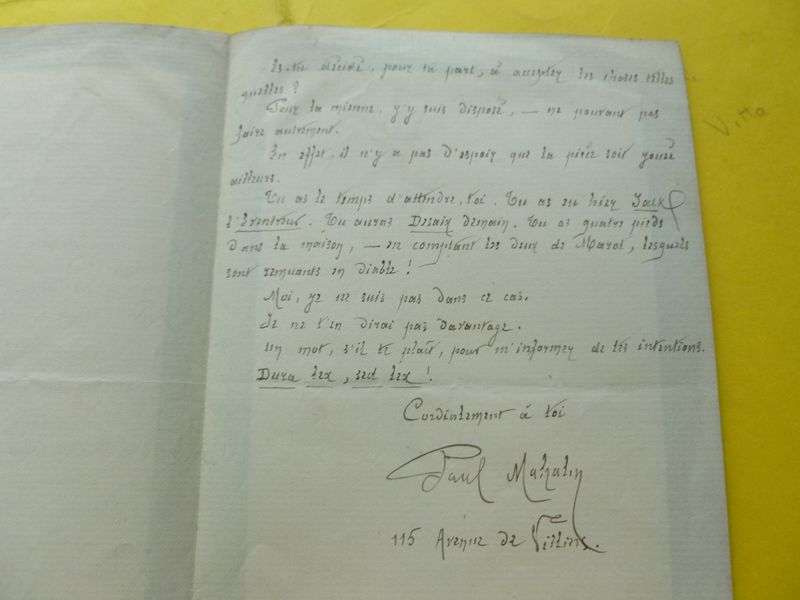 Es-tu décidé, pour ta part, à accepter les choses telles
quelles ?
Pour la mienne, j'y suis disposé, — ne pouvant pas
faire autrement.
En effet, il n'y a pas d'espoir que la pièce soit jouée
ailleurs.
Tu as le temps d'attendre, toi. Tu as eu hier Jack
l'Eventreur. Tu auras Desaix demain. Tu as quatre pieds
dans la maison, — en comptant les deux de Marot, lesquels
sont remuants en diable !
Moi, je ne suis pas dans ce cas.
Je ne t'en dirai pas davantage.
Un mot, s'il te plaît, pour m'informer de tes intentions.
Dura lex, sed lex !
Cordialement à toi
Paul Mahalin
115 Avenue de Villiers.